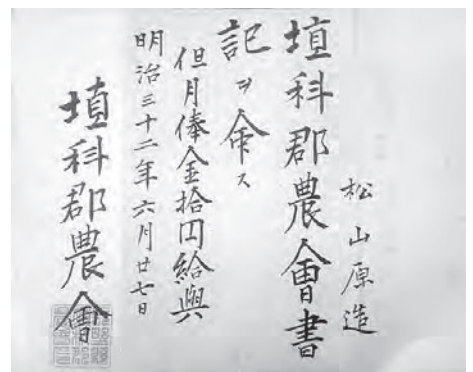 松山原造
埴科郡農會書
記ヲ命ス
但月俸金拾円給與
明治三十二年六月廿七日
埴科郡農會